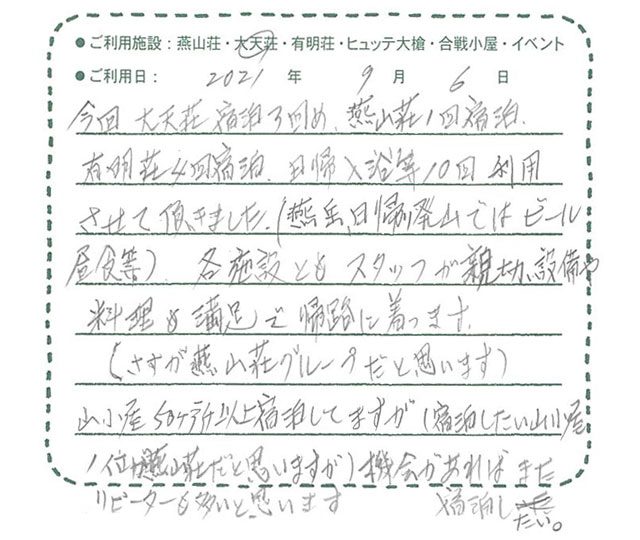 ●ご利用施設：燕山荘・大天荘・有明荘・ヒュッテ大槍・合戦小屋・イベント
●ご利用日： 2021 年 9 月 6 日
今回 大天荘 宿泊3回め、燕山荘1回宿泊、
有明荘4回宿泊、日帰入浴等10回利用
させて頂きました。(燕岳、日帰登山ではビール
昼食等) 各施設ともスタッフが親切、設備や
料理も満足で帰路に着つます。
(さすが燕山荘グループだと思います)
山小屋50ヶ所以上宿泊してますが(宿泊したい山小屋
1位が燕山荘だと思いますが)機会があればまた
リピーターも多いと思います 宿泊し
たい。